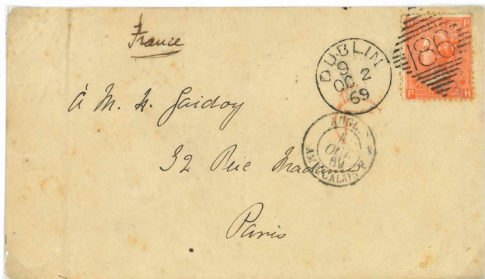 France
DUBLIN
9 2
OC
69
186
P H
à M. H. Gaidoz
32 Rue Madame
ANGL.
AMB. CALAIS
Paris